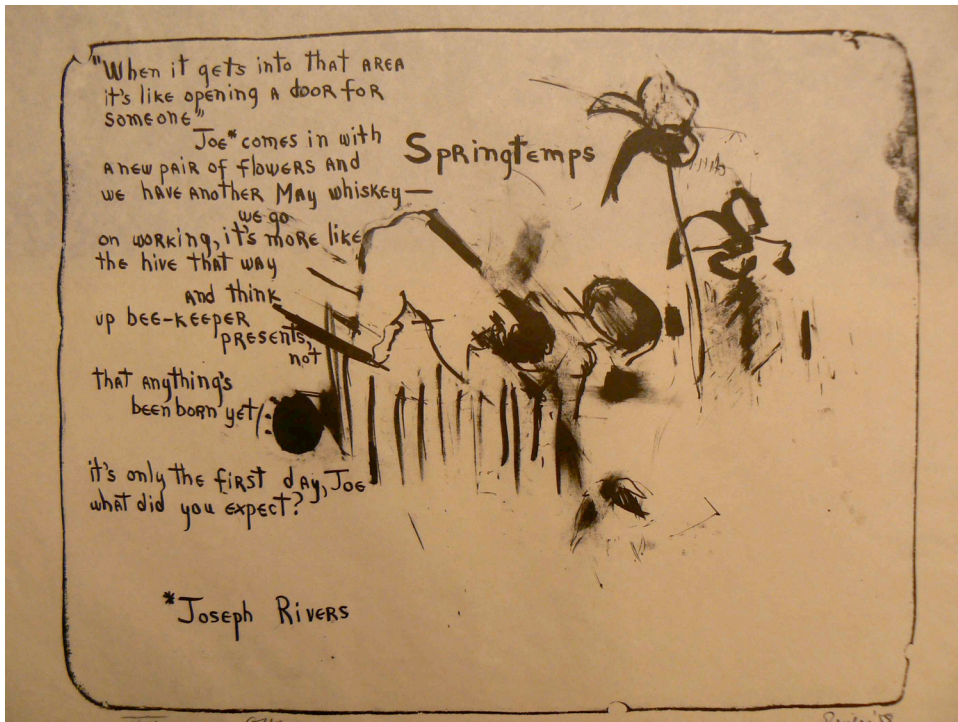 "When it gets into that area
it's like opening a door for
someone"
Joe* comes in with
a new pair of flowers and
we have another May whiskey—
we go
on working, it's more like
the hive that way
and think
up bee-keeper
presents,
not
that anything's
been born yet/:
it's only the first day, Joe
what did you expect?
Springtemps
*Joseph Rivers